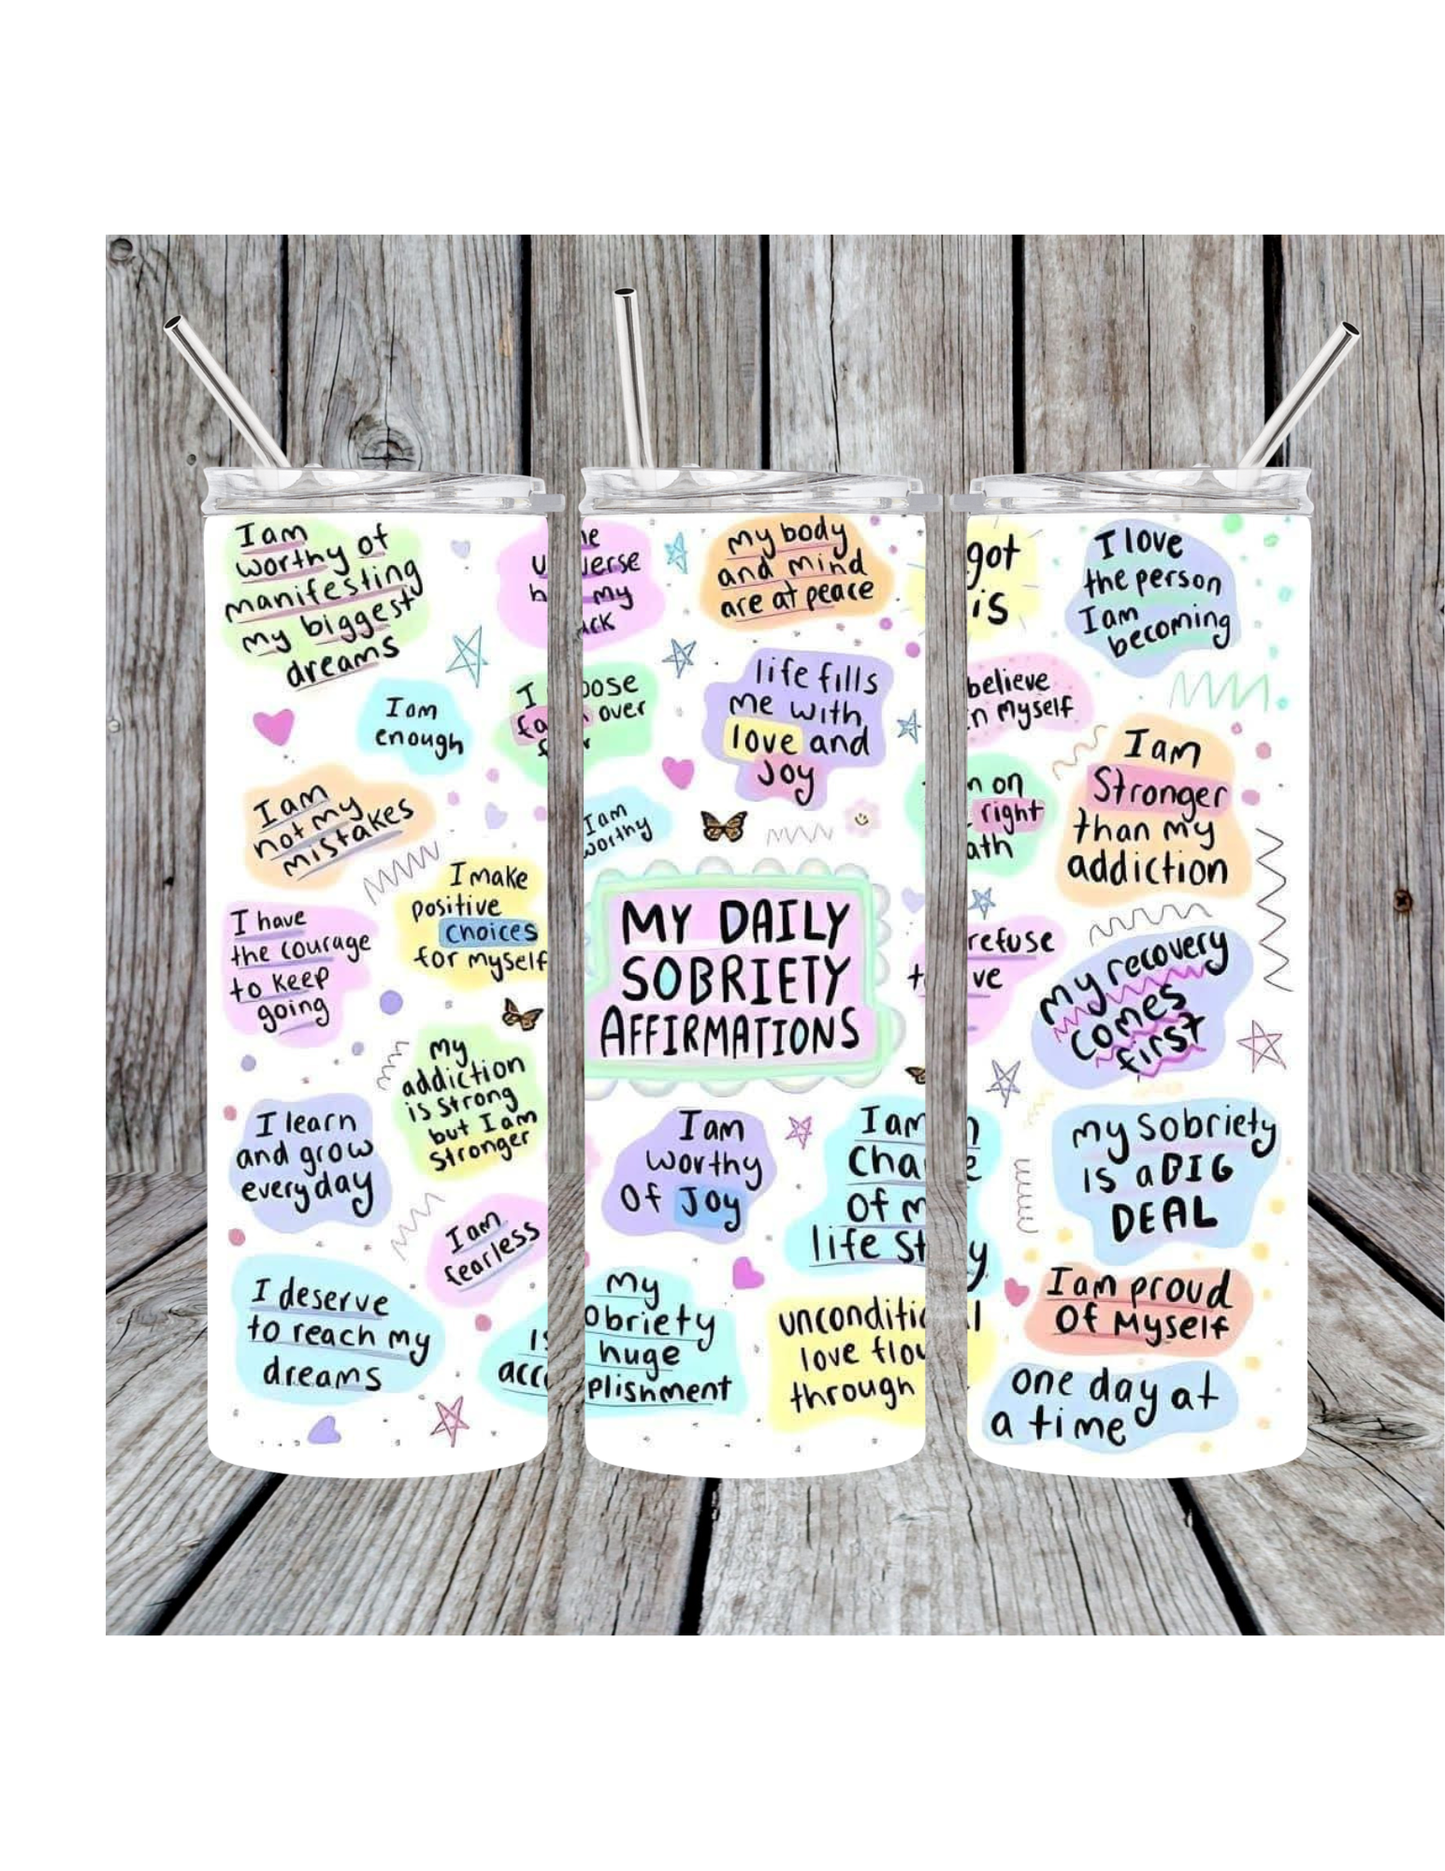 I am
worthy of
manifesting
my biggest
dreams
I am
enough
I am
not my
mistakes
I make
positive
choices
for myself
I have
the courage
to keep
going
my
addiction
is strong
but I am
stronger
I learn
and grow
everyday
I am
fearless
I deserve
to reach my
dreams
my
my body
and mind
are at peace
over
life fills
me with
love and
Joy
I am
worthy
MY DAILY
SOBRIETY
AFFIRMATIONS
I am
worthy
of Joy
I am
of
life
my
huge
love
through
got
is
I love
the person
I am
becoming
believe
myself
on
right
I am
Stronger
than my
addiction
refuse
my recovery
comes
first
my sobriety
is a BIG
DEAL
I am proud
of Myself
one day at
a time